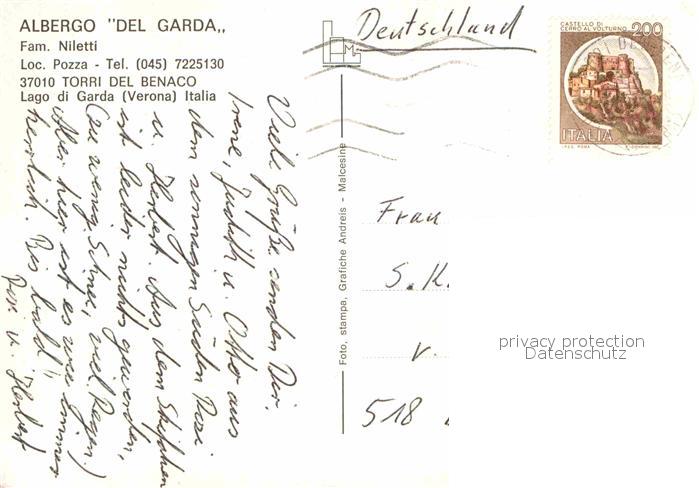 ALBERGO "DEL GARDA„
Fam. Niletti
Loc. Pozza - Tel. (045) 7225130
37010 TORRI DEL BENACO
Lago di Garda (Verona) Italia
Viele Grüße senden Dir
Irene, Judith u. Otto aus
dem sonnigen Süden Rosi
u. Herbert. Aus dem Skifahren
ist leider nichts geworden,
(zu wenig Schnee, viel Regen)
Aber hier ist es wie immer
herrlich. Bis bald"
Rosi u. Herbert
Foto, stampa, Grafiche Andreis - Malcesine
Deutschland
CASTELLO DI
CERRO AL VOLTURNO
200
ITALIA
I.P.Z.S. ROMA
Frau
S. K.
v.
518
privacy protection
Datenschutz